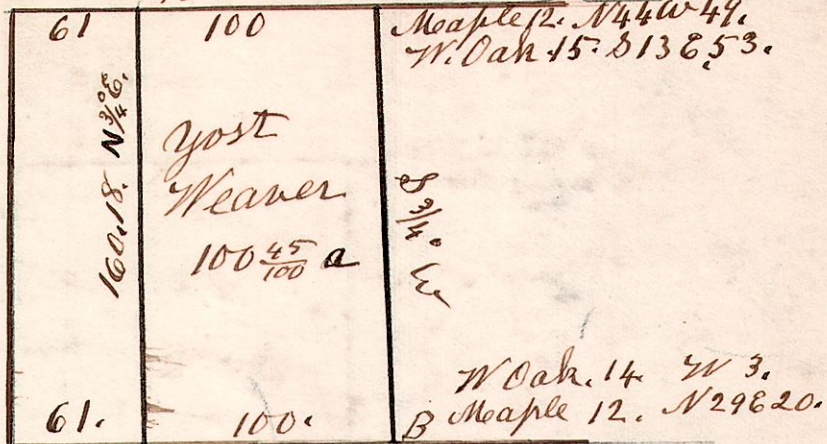 61 100 Maple 12. N44W 49.
W. Oak 15. S13E, 53.
160,18. N 3/4° E.
Yost
Weaver
100 45/100 a
S 3/4° W
W Oak. 14. W 3.
61. 100. B Maple 12. N29E20.